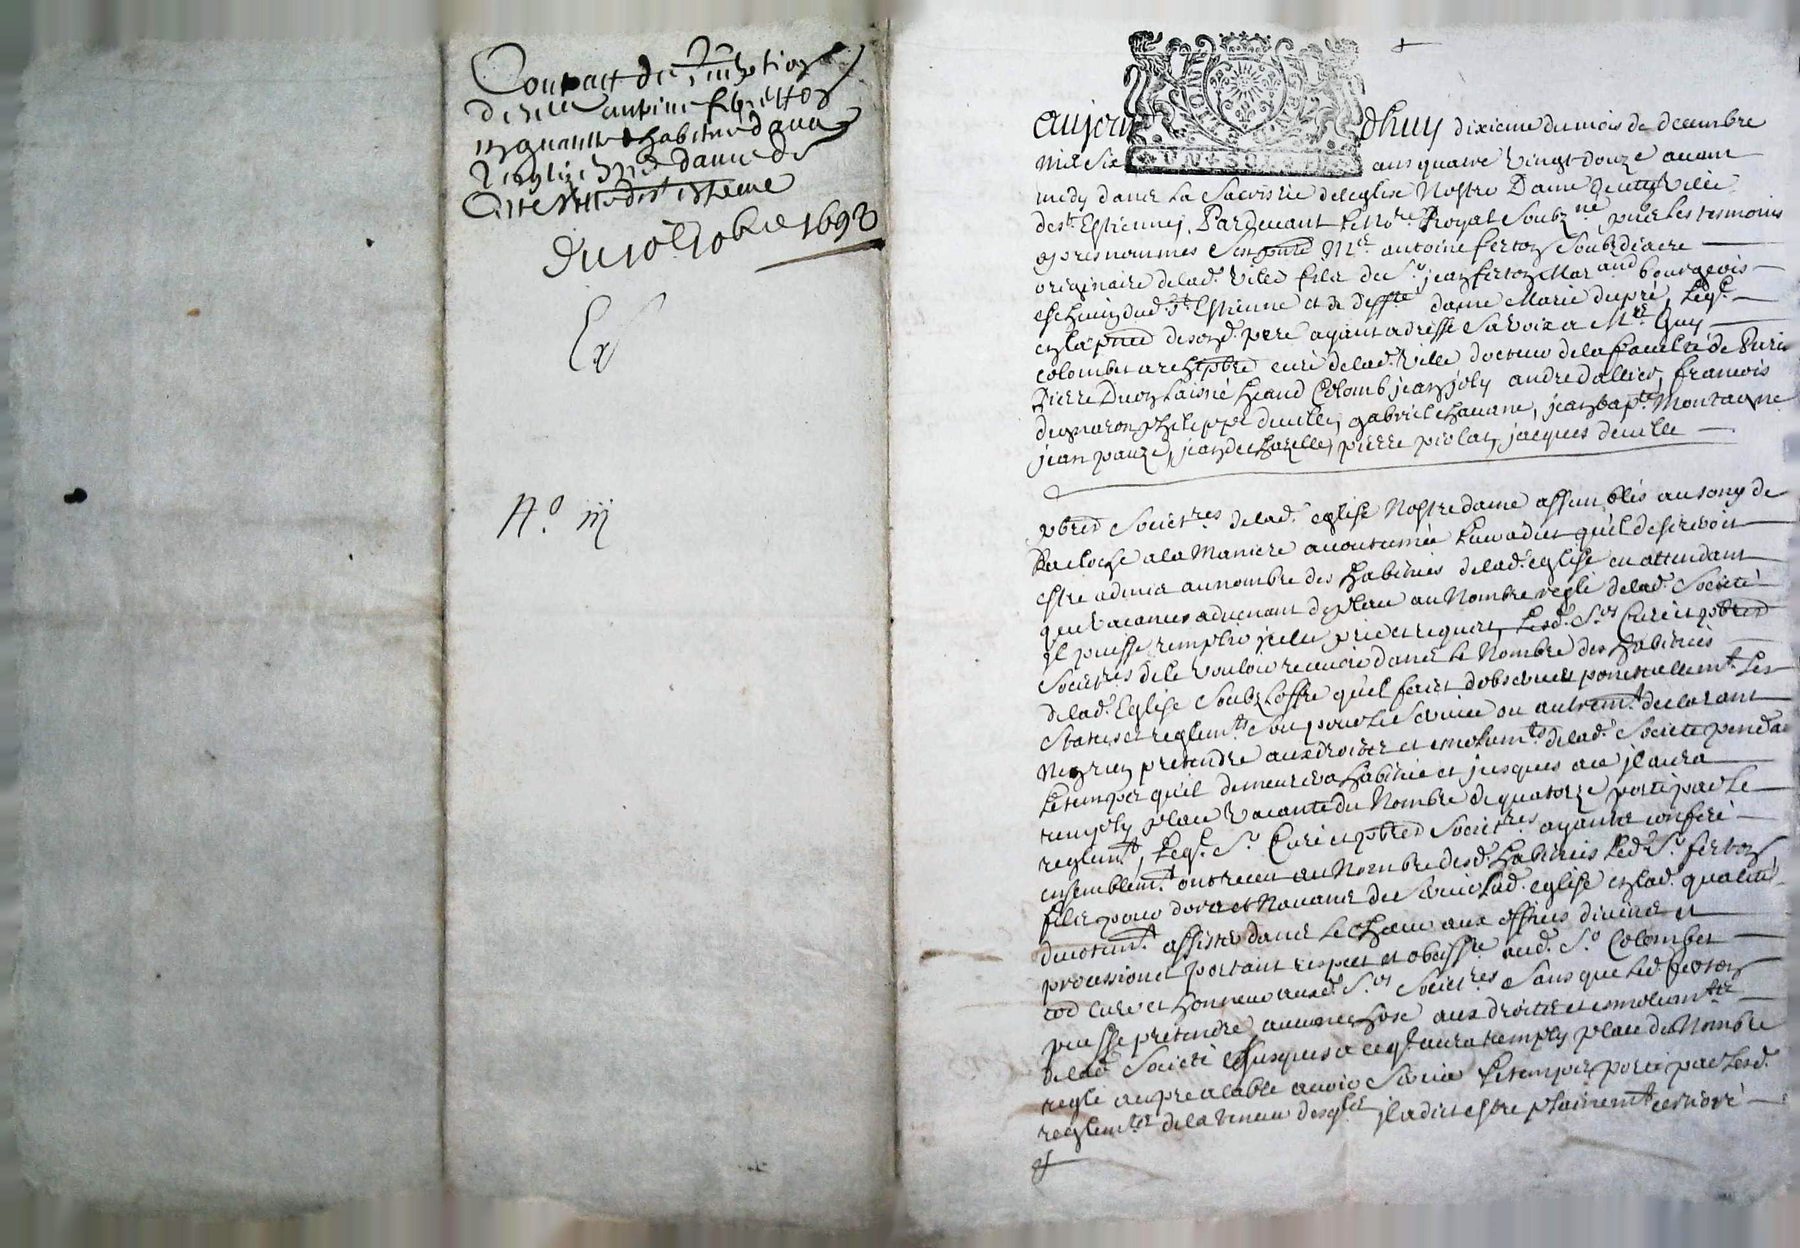 Contract de reception
de Mre antoine ferton
en qualitte d'habitué dans
l'eglise Nre dame de
cette ville de st estienne
du 10e Xbre 1692
Ex
N.o iij
aujourdhuy dixieme du mois de decembre
mil six cens quatre vingt douze avant
midy dans la Sacristie de leglise Nostre Dame de cette ville
de st. Estienne, Pardevant le Nore Royal Soubzne pnt les tesmoins
apres nommes S'est pnté Mre antoine ferton Soubzdiacre
originaire de lad. ville filz de Sr jean ferton Marchand bourgeois
dud. St Estienne et de deffte dame Marie dupré, Leql.
en la pnce de sond. pere ayant adressé Sa voix a Mre Guy
colombet archiptre curé de lad. Ville docteur de la faculté de Paris
Pierre Duon laisné Colomb jean joly andre dallier, francois
philippe deville, gabriel chavane, jean bapte Montagne
jean pauze, jean dechazelle, pierre piolat, jacques deville
pbres Societres de lad. eglise Nostre dame assemblés au song de
la cloche a la Maniere accoutumée Leur a dict qu'il desireroit
estre admis au nombre des habitués de lad. eglise en attendant
que vacance advenant de place au Nombre reglé de lad. Societé
Il puisse remplir icelle prie et requiert, Lesd. Srs Curé et pbres
Societres de le vouloir recevoir dans le Nombre des habitués
de lad. Eglise Soubz loffre qu'il faict d'observer ponctuellemt. les
Statuts et reglemts Soit pour le Service ou autremt. declarant
ne rien pretendre aux droitz et emolumts de lad. Societé pendant
le temps qu'il demeurera habitué et jusques a ce jl aura
remply place vacante du Nombre de quatorze porté par le
reglemt, Leql. Sr. Curé et pbres Societres ayantz conferé
ensemblemt. ont receu au Nombre desd. habitués led. Sr. ferton
filz pour dores et Navant deservir lad. eglise en lad. qualité
devotemt. assister dans le choeur aux offices divins et
processions portant respect et obeissce aud. Sr Colombet
curé et honneur ausd. Srs Societres Sans que led. ferton
puisse pretendre aucune chose aux droitz et emolumts
de lad. Societé jusques a ce ql. aura remply place du Nombre
reglé au prealable avoir Servir le temps porté par lesd.
reglemts de la teneur desqlz jl a dict estre plainemt certioré